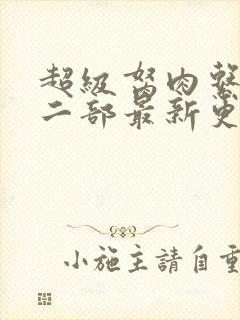 超級胬肉
二部最新更
小施主請自重